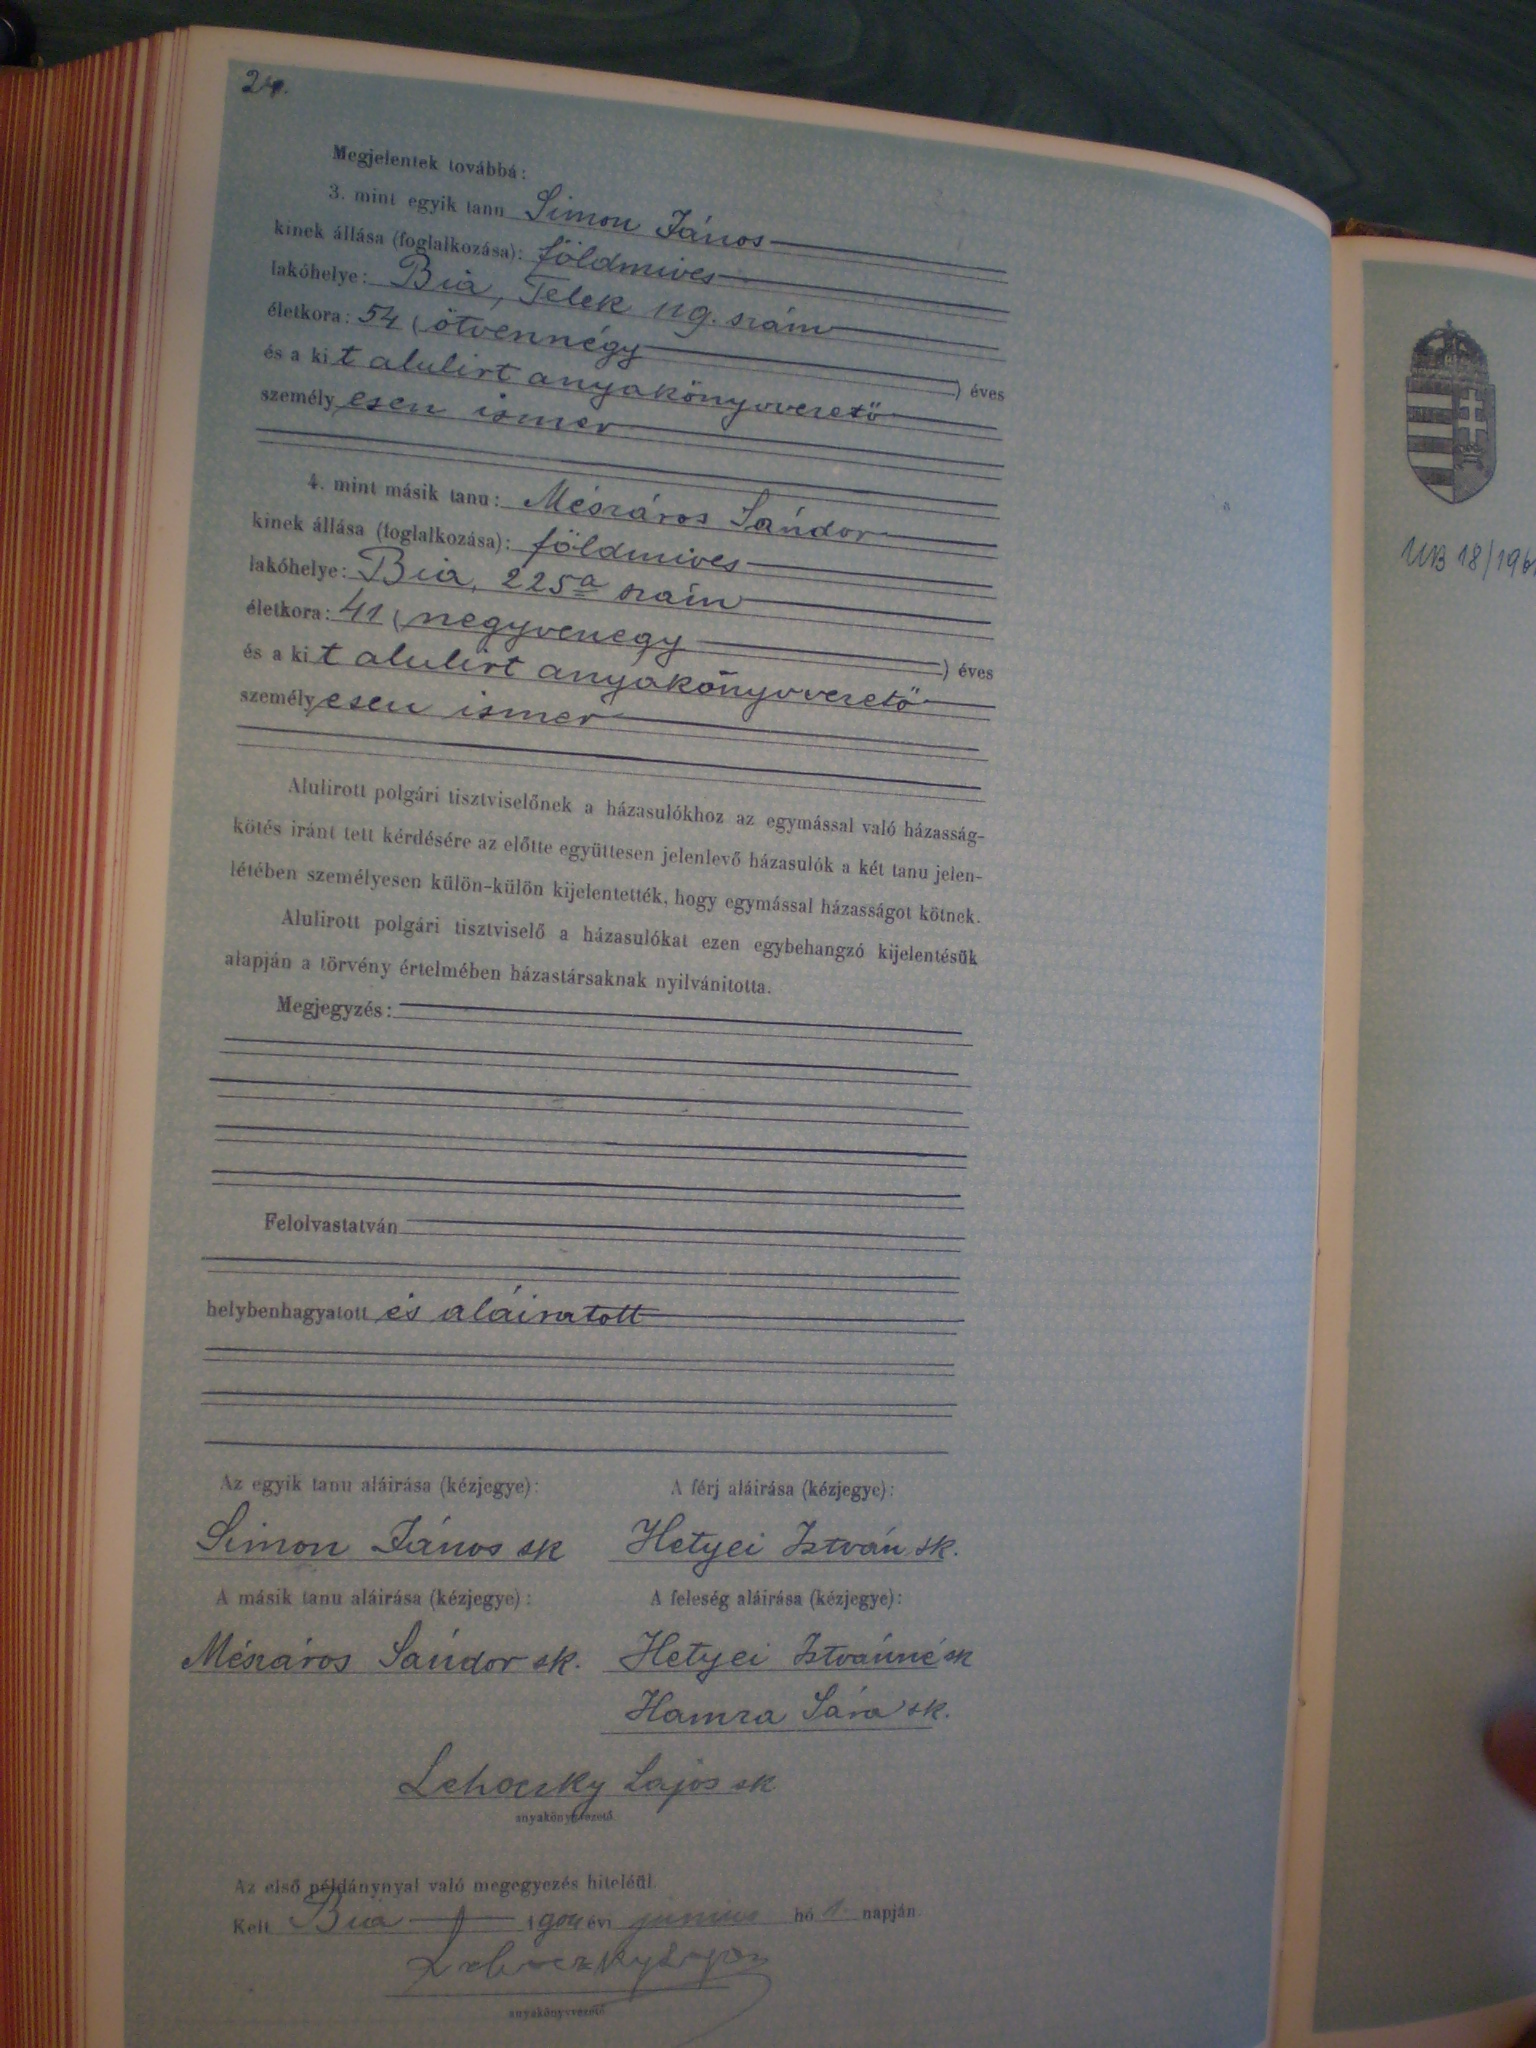 24.
Megjelentek továbbá:
3. mint egyik tanu Simon János
kinek állása (foglalkozása): földmives
lakóhelye: Bia, Telek 119. szám
életkora: 54 (ötvennégy ) éves
és a kit alulirt anyakönyvvezető
személyesen ismer
4. mint másik tanu: Mészáros Sándor
kinek állása (foglalkozása): földmives
lakóhelye: Bia, 225a szám
életkora: 41 (negyvenegy ) éves
és a kit alulirt anyakönyvvezető
személyesen ismer
Alulirott polgári tisztviselőnek a házasulókhoz az egymással való házasság-
kötés iránt tett kérdésére az előtte együttesen jelenlevő házasulók a két tanu jelen-
létében személyesen külön-külön kijelentették, hogy egymással házasságot kötnek.
Alulirott polgári tisztviselő a házasulókat ezen egybehangzó kijelentésük
alapján a törvény értelmében házastársaknak nyilvánitotta.
Megjegyzés:
Felolvastatván
helybenhagyatott és aláiratott
Az egyik tanu aláirása (kézjegye): A férj aláirása (kézjegye):
Simon János sk Hetyei István sk.
A másik tanu aláirása (kézjegye): A feleség aláirása (kézjegye):
Mészáros Sándor sk. Hetyei Istvánné sk
Hamza Sára sk.
Lehoczky Lajos sk
anyakönyvvezető
Az első példánynyal való megegyezés hiteléül.
Kelt Bia 1904 évi junius hó 1. napján.
Lehoczky Lajos
anyakönyvvezető
18/196